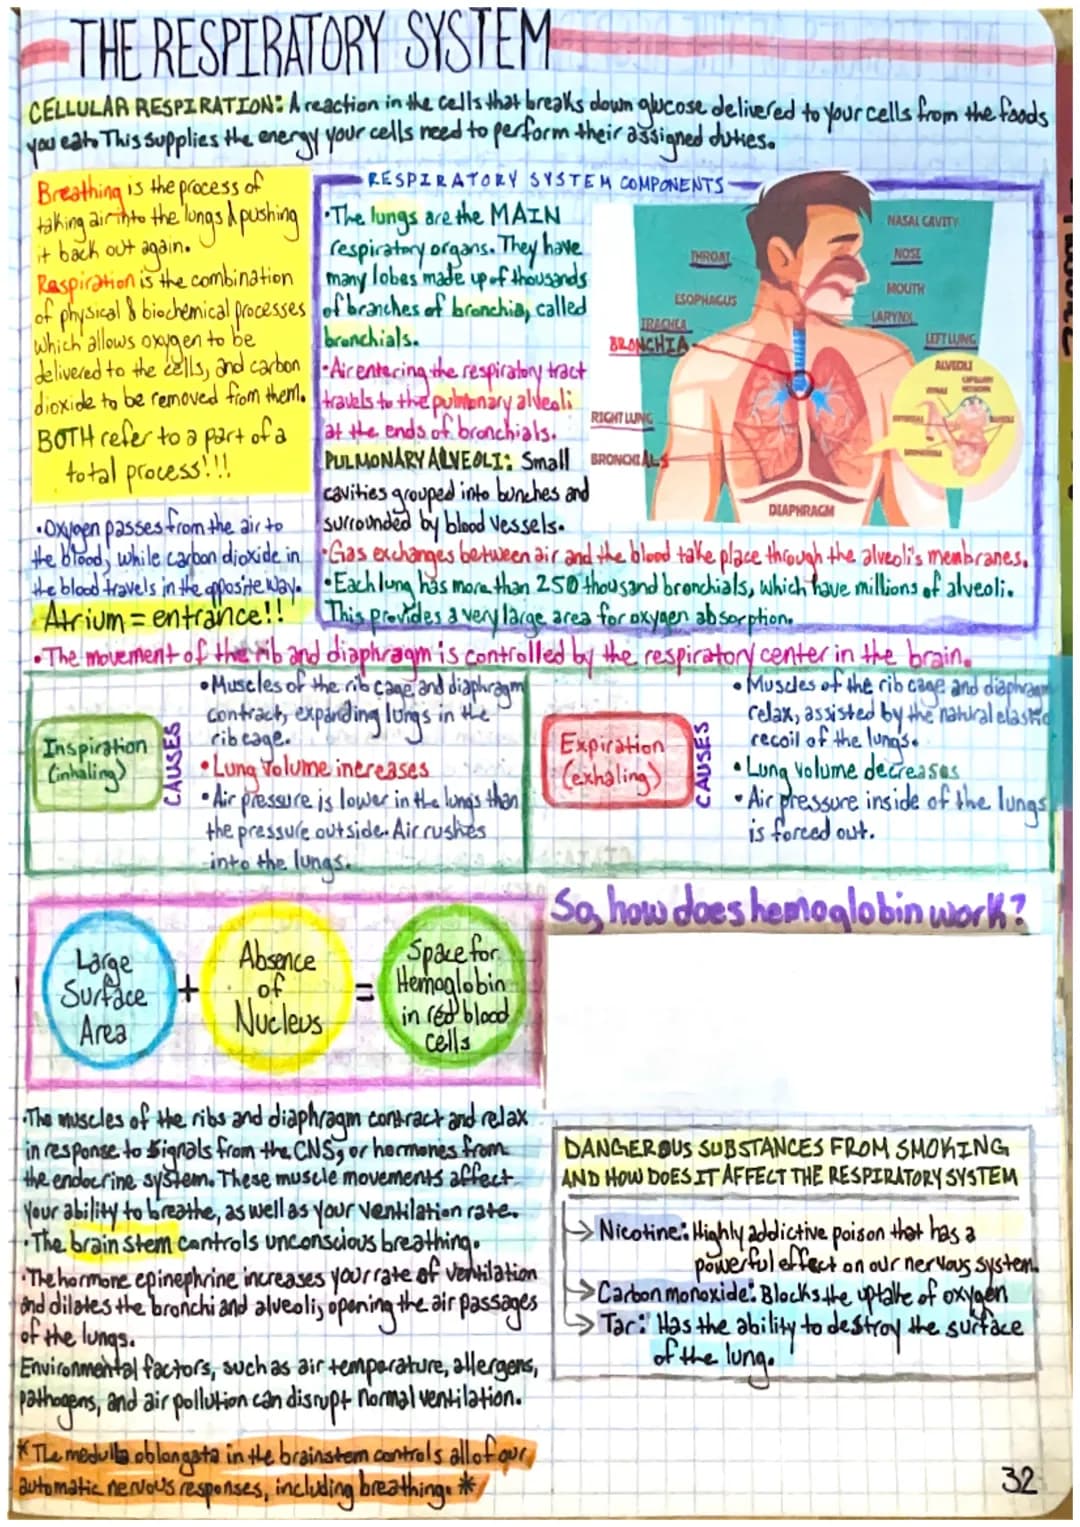 THE RESPIRATORY SYSTEM
CELLULAR RESPIRATION: A reaction in the cells that breaks down glucose delivered to your cells from the foods
you eat. This supplies the energy your cells need to perform their assigned duties.
Breathing is the process of
taking air into the lungs & pushing
it back out again.
Respiration is the combination
of physical & biochemical processes
which allows oxygen to be
delivered to the cells, and carbon
dioxide to be removed from them.
BOTH refer to a part of a
total process!!!
•Oxygen passes from the air to
the blood, while carbon dioxide in
the blood travels in the opposite way.
Atrium = entrance!!
RESPIRATORY SYSTEM COMPONENTS
•The lungs are the MAIN
respiratory organs. They have
many lobes made up of thousands
of branches of bronchia, called
bronchials.
•Air entering the respiratory tract
travels to the pulmonary alveoli
at the ends of bronchials.
PULMONARY ALVEOLI: Small
cavities grouped into bunches and
surrounded by blood vessels.
•Gas exchanges between air and the blood take place through the alveoli's membranes.
•Each lung has more than 250 thousand bronchials, which have millions of alveoli.
This provides a very large area for oxygen absorption.
NASAL CAVITY
THROAT
NOSE
MOUTH
ESOPHAGUS
LARYNX
TRACHEA
BRONCHIA
LEFT LUNG
ALVEOLI
CAPILLARY
NETWORK
RIGHT LUNG
BRONCHIALS
DIAPHRAGM
•The movement of the rib and diaphragm is controlled by the respiratory center in the brain.
Inspiration
(inhaling)
CAUSES
•Muscles of the rib cage and diaphragm
contract, expanding lungs in the
rib cage.
•Lung volume increases
•Air pressure is lower in the lungs than
the pressure outside. Air rushes
into the lungs.
Expiration
(exhaling)
CAUSES
•Muscles of the rib cage and diaphragm
relax, assisted by the natural elastic
recoil of the lungs.
•Lung volume decreases
•Air pressure inside of the lungs
is forced out.
Large
Surface
Area
+
Absence
of
Nucleus
=
Space for
Hemoglobin
in red blood
cells
So, how does hemoglobin work?
•The muscles of the ribs and diaphragm contract and relax
in response to signals from the CNS, or hormones from
the endocrine system. These muscle movements affect
your ability to breathe, as well as your ventilation rate.
•The brain stem controls unconscious breathing.
•The hormone epinephrine increases your rate of ventilation
and dilates the bronchi and alveoli, opening the air passages
of the lungs.
Environmental factors, such as air temperature, allergens,
pathogens, and air pollution can disrupt normal ventilation.
*The medulla oblongata in the brainstem controls all of our
automatic nervous responses, including breathing. *
DANGEROUS SUBSTANCES FROM SMOKING
AND HOW DOES IT AFFECT THE RESPIRATORY SYSTEM
→ Nicotine: Highly addictive poison that has a
powerful effect on our nervous system.
→ Carbon monoxide: Blocks the uptake of oxygen
→ Tar: Has the ability to destroy the surface
of the lung.
32